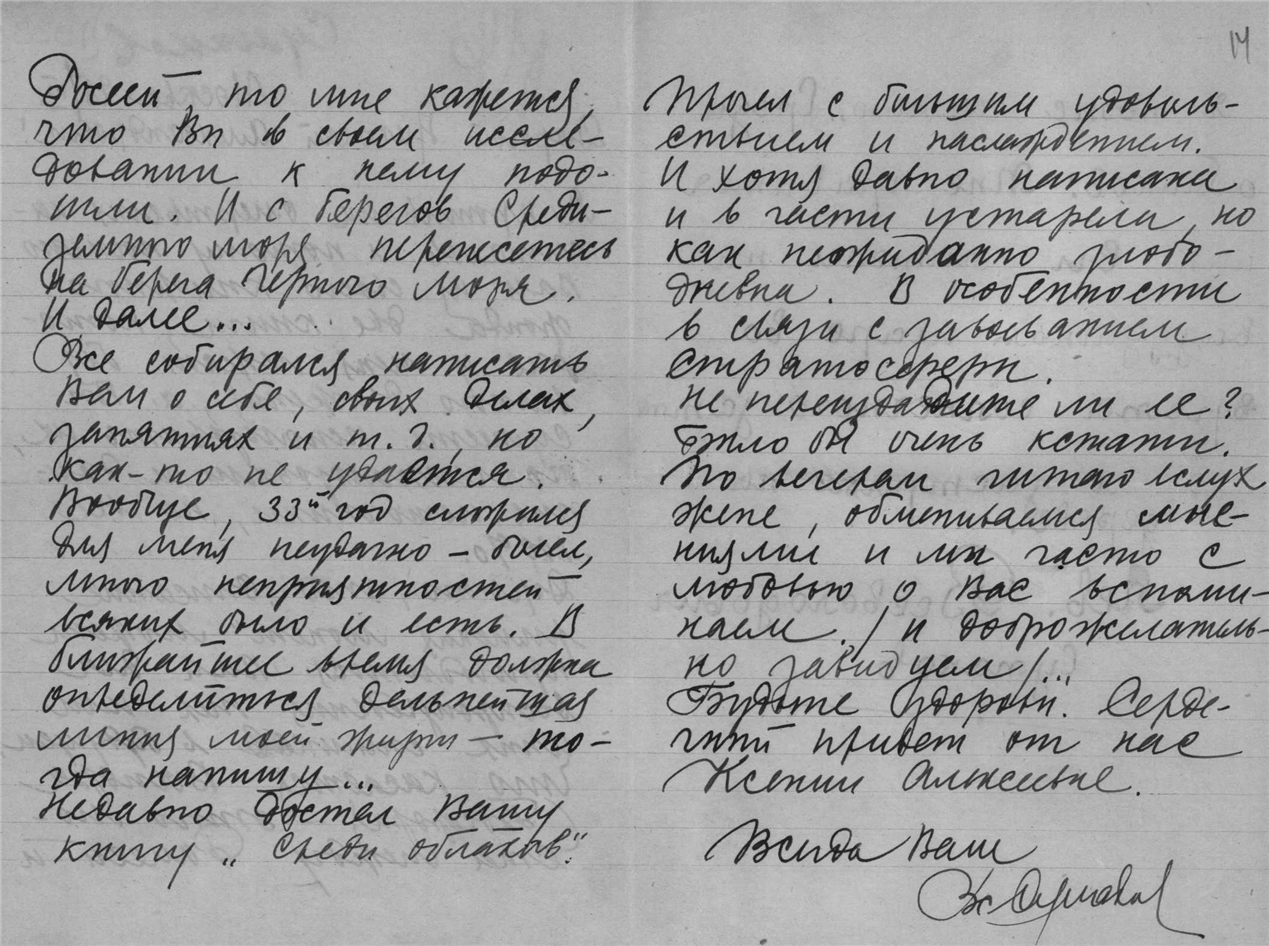 14
то мне кажется,
что Вы в своем иссле-
довании к нему подо-
шли. И с берегов Среди-
земного моря перенесетесь
на берега Черного моря.
И далее...
Все собирался написать
Вам о себе, своих делах,
занятиях и т. д., но
как-то не удается.
Вообще, 33й год сложился
для меня неудачно – болел,
много неприятностей
всяких было и есть. В
ближайшее время должна
определиться дальнейшая
линия моей жизни – то-
гда напишу...
Недавно достал Вашу
книгу „Среди облаков".
Прочел с большим удоволь-
ствием и наслаждением.
И хотя давно написана
и в части устарела, но
как неожиданно злобо-
дневна. В особенности
в связи с завоеванием
стратосферы.
Не переиздадите ли ее?
Было бы очень кстати.
По вечерам читаю вслух
жене, обмениваемся мне-
ниями и мы часто с
любовью о Вас вспоми-
наем. / и доброжелатель-
но завидуем /...
Будьте здоровы. Серде-
чный привет от нас
Ксении Алексеевне.
Всегда Ваш